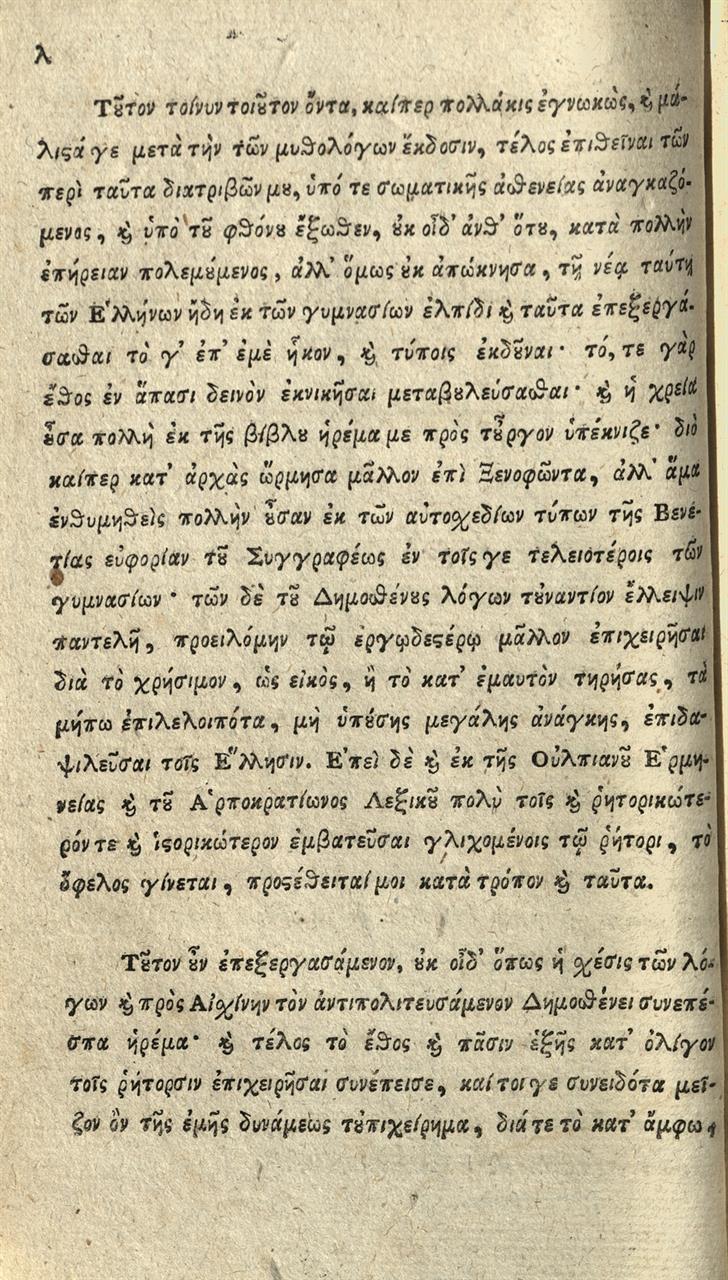 λ
Τȣ͂τον τοίνυν τοιȣ͂τον ὄντα, καίπερ πολλάκις ἐγνωκὼς, ϗ μά-
λιϛά γε μετὰ τὴν τῶν μυθολόγων ἔκδοσιν, τέλος ἐπιθεῖναι τῶν
περὶ ταῦτα διατριβῶν μȣ, ὑπό τε σωματικῆς ἀσθενείας ἀναγκαζό-
μενος, ϗ ὑπὸ τȣ͂ φθόνȣ ἔξωθεν, ȣ̓κ οἶδ' ἀνθ' ὅτȣ, κατὰ πολλὴν
ἐπήρειαν πολεμȣ́μενος, ἀλλ' ὅμως ȣ̓κ ἀπώκνησα, τῇ νέᾳ ταύτῃ
τῶν Ἑλλήνων ἤδη ἐκ τῶν γυμνασίων ἐλπίδι ϗ ταῦτα ἐπεξεργά-
σασθαι τὸ γ' ἐπ' ἐμὲ ἧκον, ϗ τύποις ἐκδȣ͂ναι· τό, τε γὰρ
ἔθος ἐν ἅπασι δεινὸν ἐκνικῆσαι μεταβȣλεύσασθαι· ϗ ἡ χρεία
ȣ̓͂σα πολλὴ ἐκ τῆς βίβλȣ ἠρέμα με πρὸς τȣ̓͂ργον ὑπέκνιζε· διὸ
καίπερ κατ' ἀρχὰς ὥρμησα μᾶλλον ἐπὶ Ξενοφῶντα, ἀλλ' ἅμα
ἐνθυμηθεὶς πολλὴν ȣ̓͂σαν ἐκ τῶν αὐτοσχεδίων τύπων τῆς Βενε-
τίας εὐφορίαν τȣ͂ Συγγραφέως ἐν τοῖς γε τελειοτέροις τῶν
γυμνασίων· τῶν δὲ τȣ͂ Δημοσθένȣς λόγων τȣ̓ναντίον ἔλλειψιν
παντελῆ, προειλόμην τῷ ἐργωδεϛέρῳ μᾶλλον ἐπιχειρῆσαι
διὰ τὸ χρήσιμον, ὡς εἰκὸς, ἢ τὸ κατ' ἐμαυτὸν τηρήσας, τὰ
μήπω ἐπιλελοιπότα, μὴ ὑπȣ́σης μεγάλης ἀνάγκης, ἐπιδα-
ψιλεῦσαι τοῖς Ἕλλησιν. Ἐπεὶ δὲ ϗ ἐκ τῆς Οὐλπιανȣ͂ Ἑρμη-
νείας ϗ τȣ͂ Ἁρποκρατίωνος Λεξικȣ͂ πολὺ τοῖς ϗ ῥητορικώτε-
ρόν τε ϗ ἱϛορικώτερον ἐμβατεῦσαι γλιχομένοις τῷ ῥήτορι, τὸ
ὄφελος γίνεται, προϛέθειταί μοι κατὰ τρόπον ϗ ταῦτα.
Τȣ͂τον ȣ̓͂ν ἐπεξεργασάμενον, ȣ̓κ οἶδ' ὅπως ἡ σχέσις τῶν λό-
γων ϗ πρὸς Αἰσχίνην τὸν ἀντιπολιτευσάμενον Δημοσθένει συνεπέ-
σπα ἠρέμα· ϗ τέλος τὸ ἔθος ϗ πᾶσιν ἑξῆς κατ' ὀλίγον
τοῖς ῥήτορσιν ἐπιχειρῆσαι συνέπεισε, καί τοι γε συνειδότα μεῖ-
ζον ὂν τῆς ἐμῆς δυνάμεως τȣ̓πιχείρημα, διά τε τὸ κατ' ἄμφω,